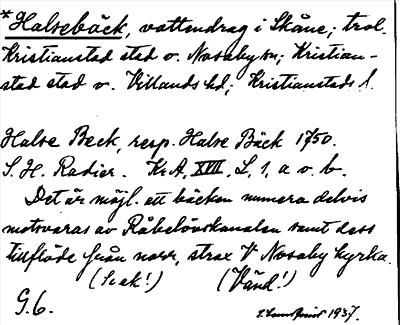 *Halsebäck, vattendrag i Skåne; trol.
Kristianstad stad o. Nosaby sn; Kristian-
stad stad o. Villands hd; Kristianstads l.
Halse Beck, resp. Halse Bäck 1750.
S. H. Radier. KrA, XVII, L, 1, a o. b.
Det är möjl. att bäcken numera delvis
motsvaras av Råbelövskanalen samt dess
tillflöde från norr, strax V Nosaby kyrka.
(Se ak!) (Vänd!)
G.6. 1937.